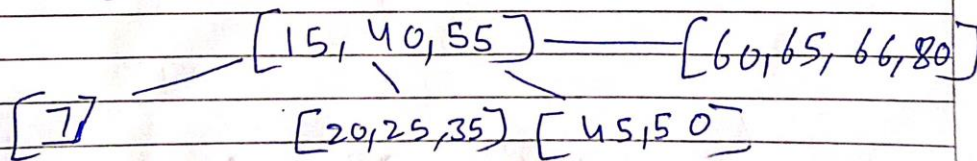 [15, 40, 55] [60, 65, 66, 80]
[7] [20, 25, 35] [45, 50]